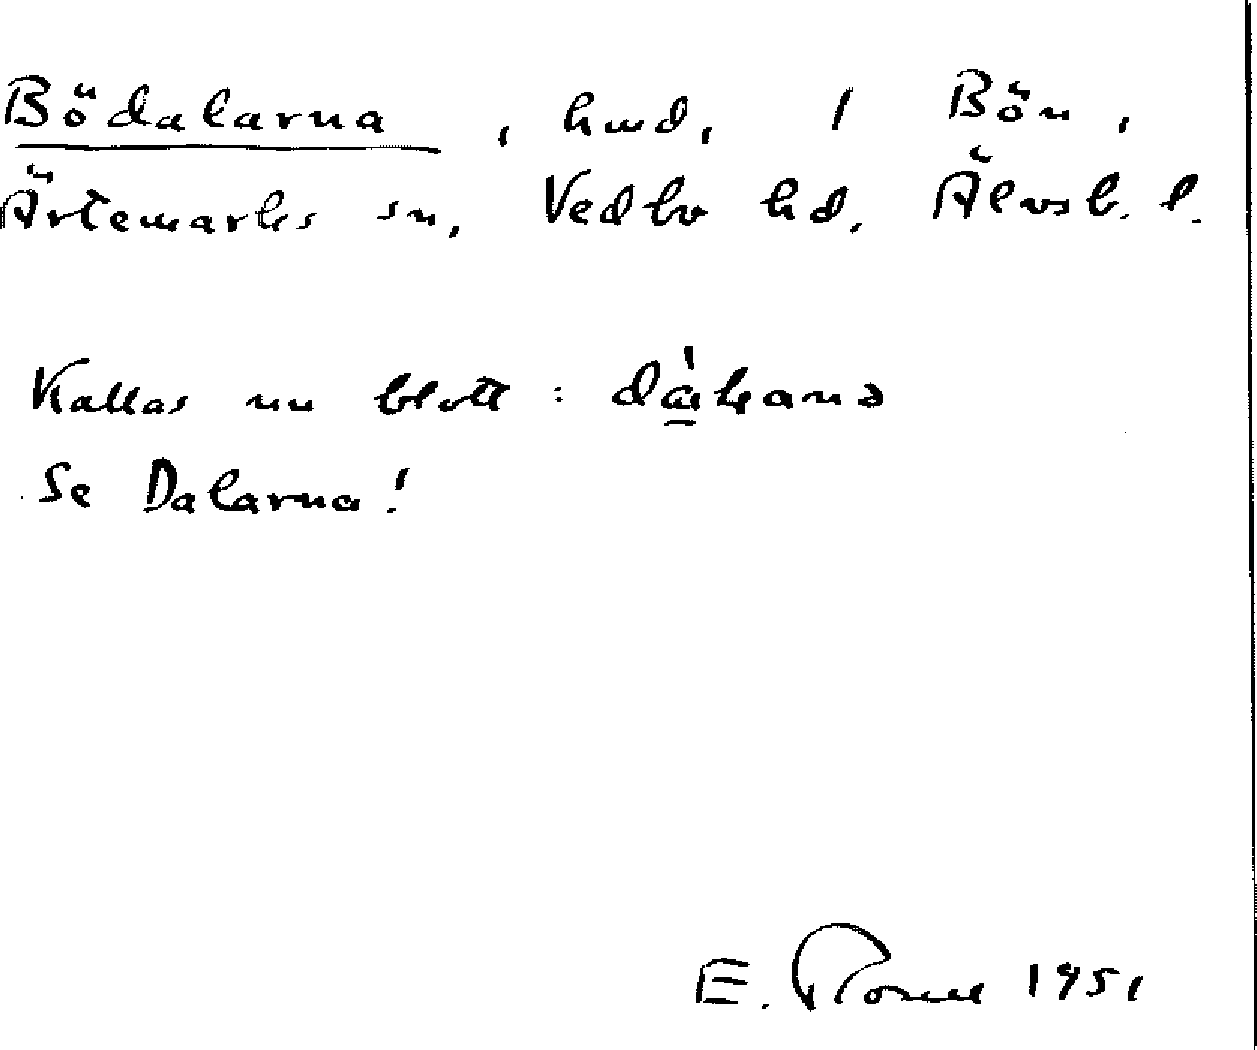 Bödalarna, hmd, i Bön,
Ärtemarks sn, Vedbo hd, Älvsb. l.
Kallas nu blott:
Se Dalarna!
E. 1951